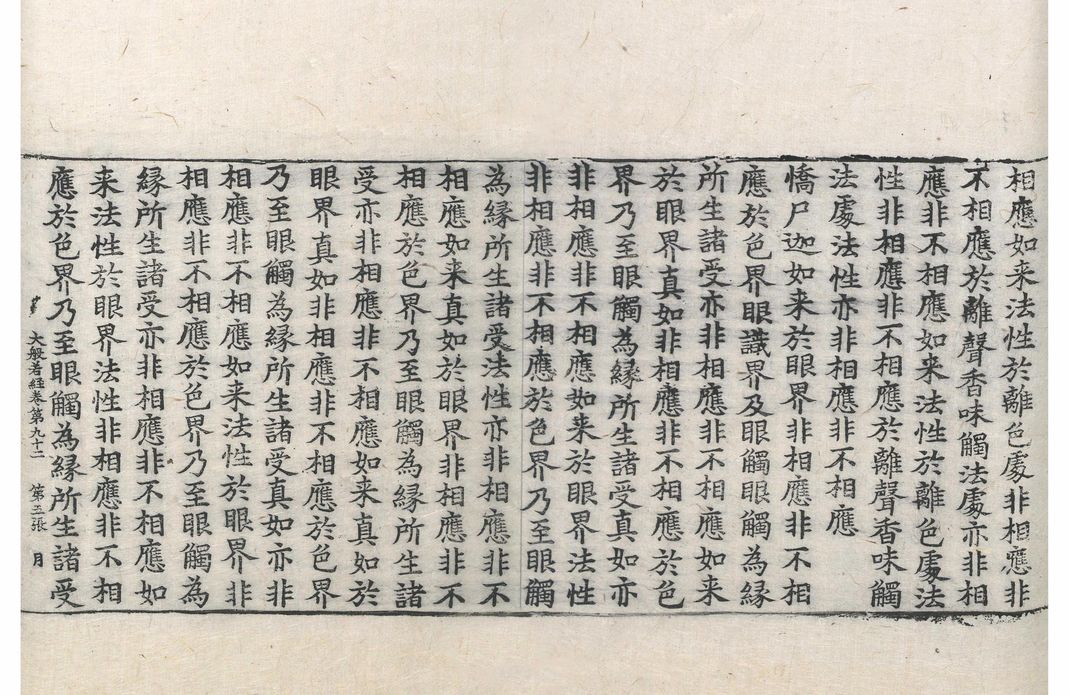 相應如来法性於離色處非相應非
不相應於離聲香味觸法處亦非相
應非不相應如来法性於離色處法
性非相應非不相應於離聲香味觸
法處法性亦非相應非不相應
憍尸迦如来於眼界非相應非不相
應於色界眼識界及眼觸眼觸為緣
所生諸受亦非相應非不相應如来
於眼界真如非相應非不相應於色
界乃至眼觸為緣所生諸受真如亦
非相應非不相應如来於眼界法性
非相應非不相應於色界乃至眼觸
為緣所生諸受法性亦非相應非不
相應如来真如於眼界非相應非不
相應於色界乃至眼觸為緣所生諸
受亦非相應非不相應如来真如於
眼界真如非相應非不相應於色界
乃至眼觸為緣所生諸受真如亦非
相應非不相應如来法性於眼界非
相應非不相應於色界乃至眼觸為
緣所生諸受亦非相應非不相應如
来法性於眼界法性非相應非不相
應於色界乃至眼觸為緣所生諸受
大般若經卷第九十二 第五張 月